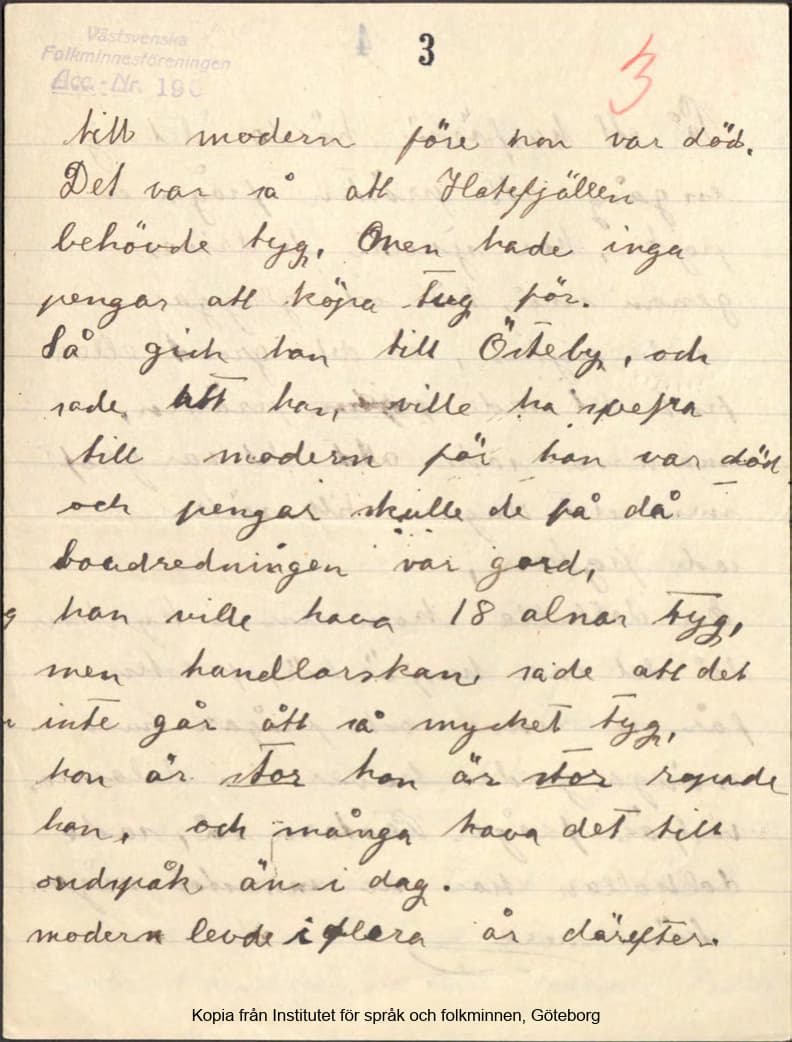 Västsvenska
Folkminnesföreningen
Acc.-Nr. 190
3
3
till modern före hon var död.
Det var så att Hatefjällen
behövde tyg, Men hade inga
pengar att köpa tug för.
Så gick han till Österby, och
sade att han, ville ha svepa
till modern för hon var död
och pengar skulle de få då
boudredningen var gord,
han ville hava 18 alnar tyg,
men handlarskan sade att det
inte går ått så mycket tyg,
hon är stor hon är stor ropade
han, och många hava det till
ordspåk än i dag.
modern levde i flera år därefter.
Kopia från Institutet för språk och folkminnen, Göteborg